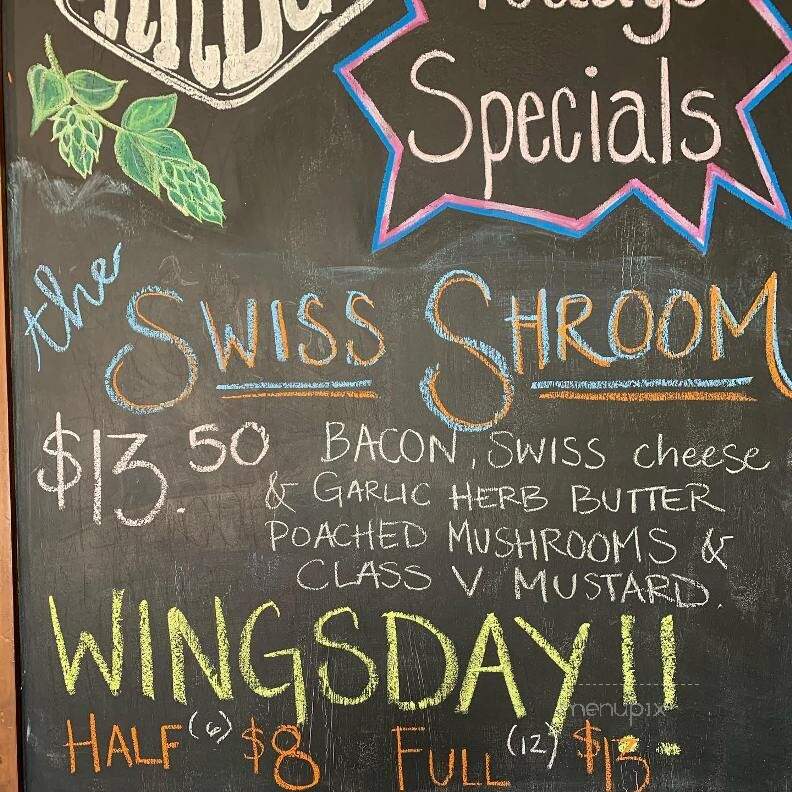 Today's
Specials
the SWISS SHROOM
$13.50 BACON, SWISS cheese
& GARLIC HERB BUTTER
POACHED MUSHROOMS &
CLASS V MUSTARD.
WINGSDAY!!
menupix
HALF (6) $8 FULL (12) $15-